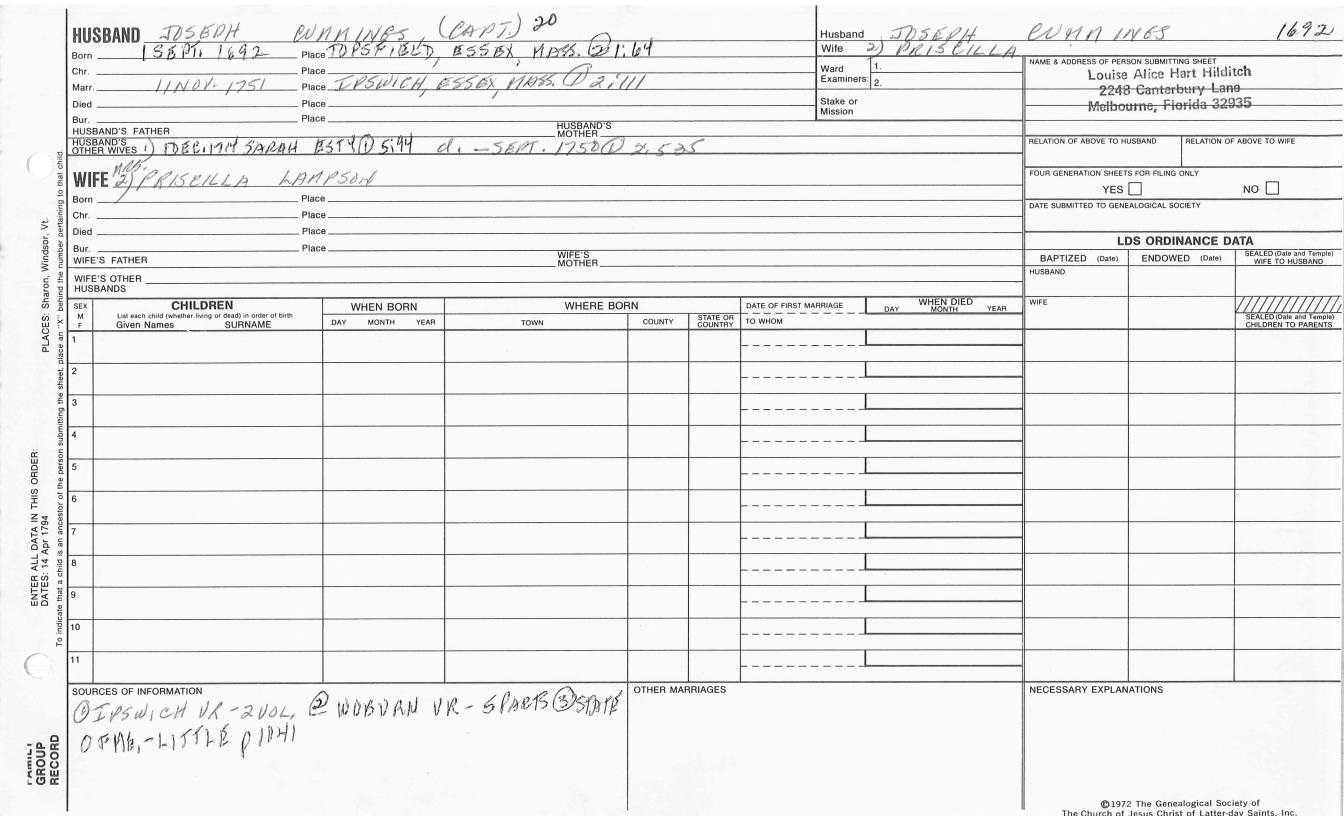 HUSBAND JOSEPH CUMMINGS, (CAPT.) 20
Born 1 SEPT. 1692 Place TOPSFIELD, ESSEX, MASS. ② 1:64
Chr. Place
Marr. 11 NOV. 1751 Place IPSWICH, ESSEX, MASS. ① 2:111
Died Place
Bur. Place
HUSBAND'S FATHER HUSBAND'S MOTHER
HUSBAND'S OTHER WIVES 1) SARAH ESTY ① d. – SEPT. 1750 ①
WIFE MRS. 2) PRISCILLA LAMPSON
Born Place
Chr. Place
Died Place
Bur. Place
WIFE'S FATHER WIFE'S MOTHER
WIFE'S OTHER HUSBANDS
Husband JOSEPH CUMMINGS 1692
Wife 2) PRISCILLA
Ward Examiners: 1.
2.
Stake or Mission
NAME & ADDRESS OF PERSON SUBMITTING SHEET
Louise Alice Hart Hilditch
2248 Canterbury Lane
Melbourne, Florida 32935
RELATION OF ABOVE TO HUSBAND RELATION OF ABOVE TO WIFE
FOUR GENERATION SHEETS FOR FILING ONLY
YES NO
DATE SUBMITTED TO GENEALOGICAL SOCIETY
LDS ORDINANCE DATA
BAPTIZED (Date) ENDOWED (Date) SEALED (Date and Temple) WIFE TO HUSBAND
HUSBAND
WIFE
SEALED (Date and Temple) CHILDREN TO PARENTS
SEX M F
CHILDREN
List each child (whether living or dead) in order of birth
Given Names SURNAME
WHEN BORN
DAY MONTH YEAR
WHERE BORN
TOWN COUNTY STATE OR COUNTRY
DATE OF FIRST MARRIAGE
TO WHOM
WHEN DIED
DAY MONTH YEAR
1
2
3
4
5
6
7
8
9
10
11
SOURCES OF INFORMATION
① IPSWICH VR - 2 VOL, ② WOBURN VR - 5 PARTS ③ STATE
OF ME, - LITTLE
OTHER MARRIAGES
NECESSARY EXPLANATIONS
©1972 The Genealogical Society of
The Church of Jesus Christ of Latter-day Saints, Inc.
PLACES: Sharon, Windsor, Vt.
To indicate that a child is an ancestor of the person submitting the sheet, place an "X" behind the number pertaining to that child.
ENTER ALL DATA IN THIS ORDER:
DATES: 14 Apr 1794
FAMILY
GROUP
RECORD